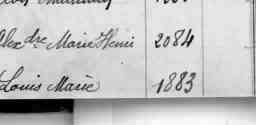 Alexdre Marie Henri 2084
Louis Marie 1883